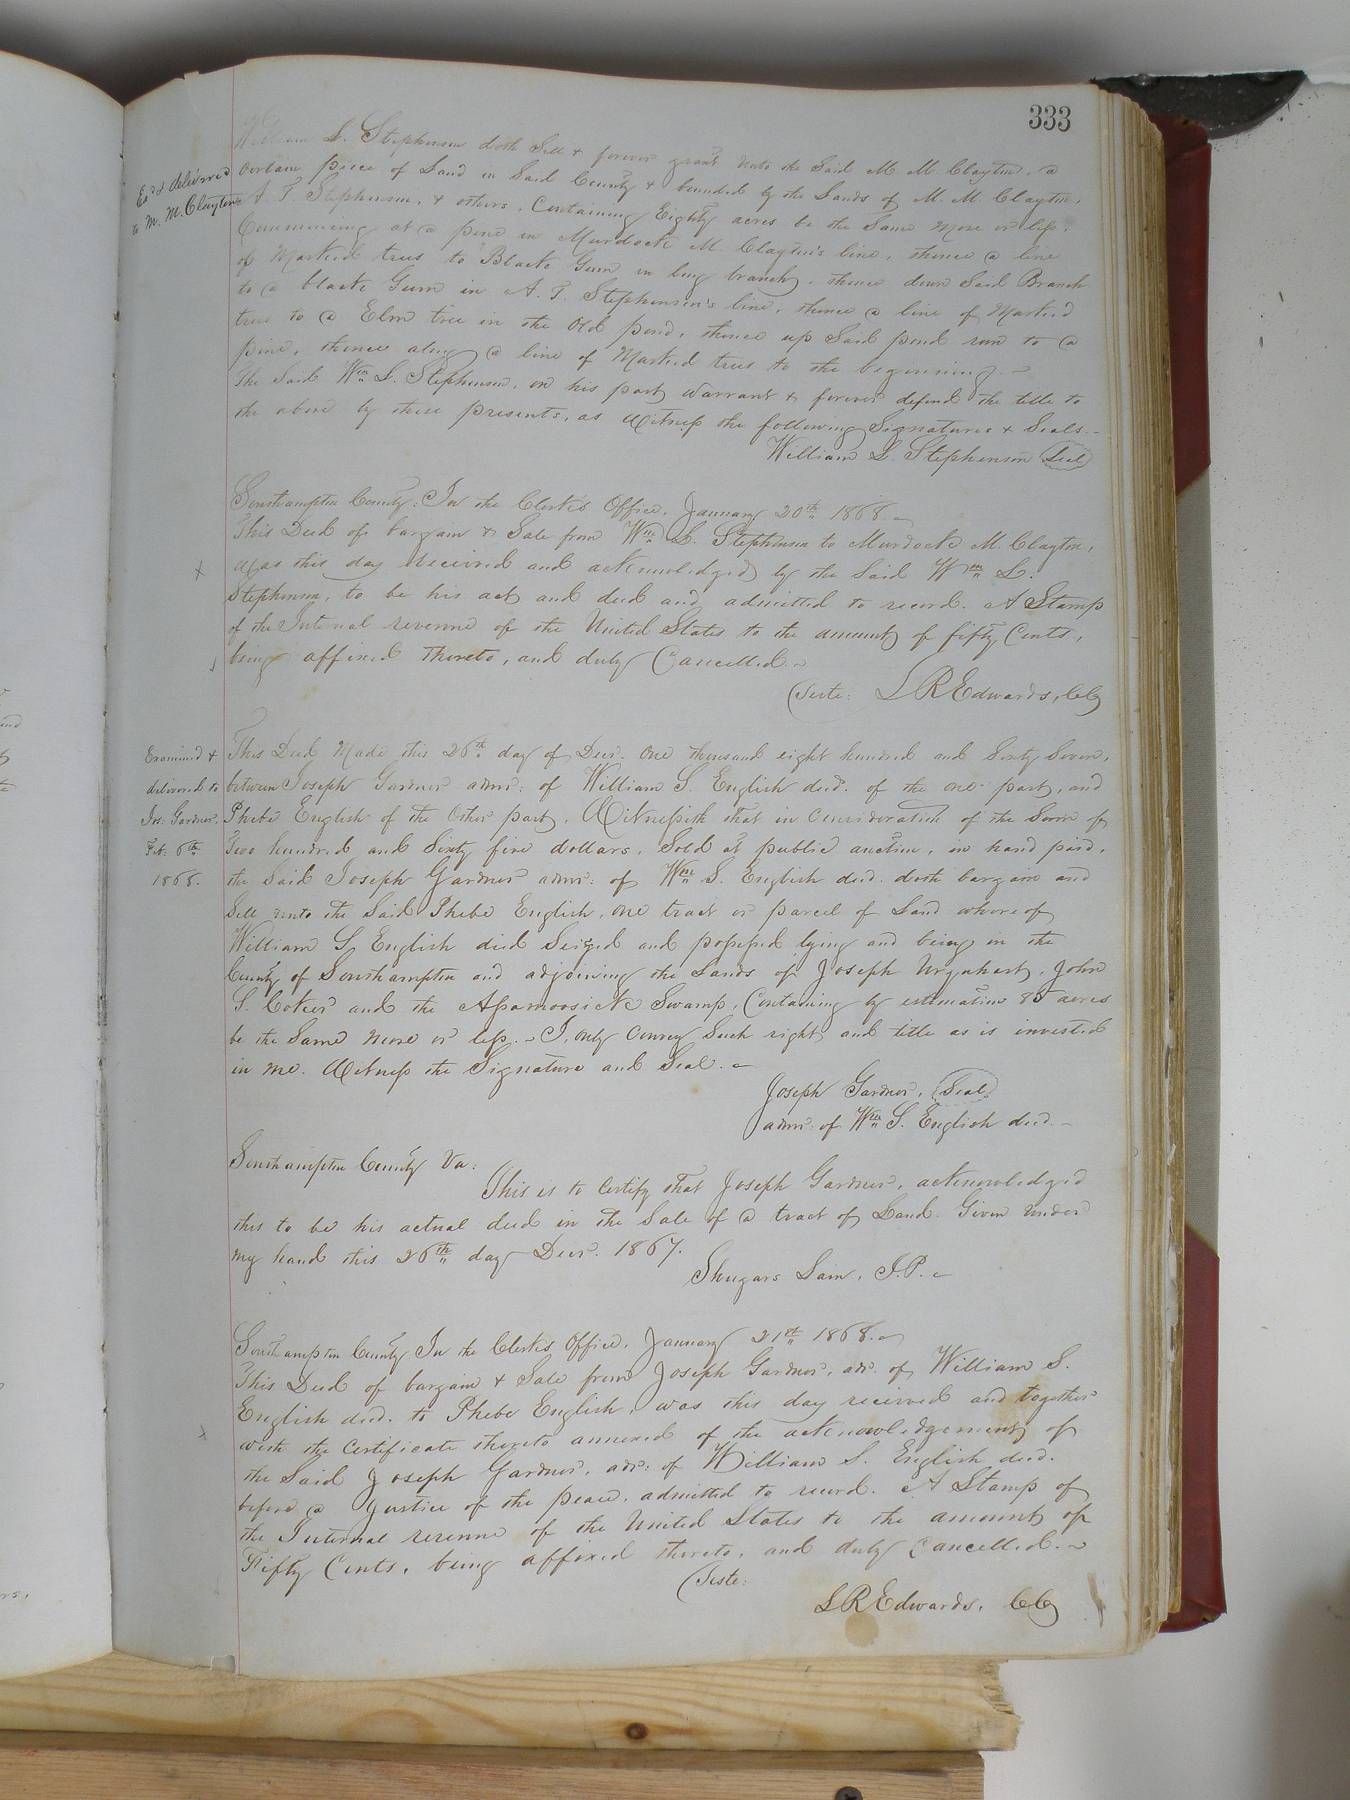 333
William L. Stephenson doth Sell & forever grant unto the Said M. M. Clayton, a
certain piece of Land in Said County & bounded by the Lands of M. M. Clayton,
A. T. Stephenson, & others, Containing Eighty acres be the Same more or less,
Commencing at a pine in Murdock M. Clayton's line, thence a line
of Marked trees to Black Gum in branch, thence down Said Branch
to a black Gum in A. T. Stephenson's line, thence a line of Marked
trees to a Elm tree in the Old pond, thence up Said pond run to a
pine, thence along a line of Marked trees to the beginning.
The Said Wm L. Stephenson, on his part, warrant & forever defend the title to
the above by these presents, as Witness the following Signatures & Seals.
William L. Stephenson Seal
Exd & delivered
to M. M. Clayton
Southampton County: In the Clerk's Office, January 20th 1868
This Deed of bargain & Sale from Wm L. Stephenson to Murdock M. Clayton,
was this day received and acknowledged by the Said Wm L.
Stephenson, to be his act and deed and admitted to record. A Stamp
of the Internal revenue of the United States to the amount of fifty Cents,
being affixed thereto, and duly Cancelled.
Teste: L R Edwards, CC
Examined &
delivered to
Jos: Gardner
Feb: 6th
1868.
This Deed Made this 26th day of Decr. One thousand eight hundred and Sixty Seven,
between Joseph Gardner admr: of William S. English decd. of the one part, and
Phebe English of the Other part, Witnesseth that in Consideration of the Sum of
Two hundred and Sixty five dollars, Sold at public auction, in hand paid,
the Said Joseph Gardner admr: of Wm S. English decd. doth bargain and
Sell unto the Said Phebe English, one tract or parcel of Land whereof
William S. English died Seized and possessed lying and being in the
County of Southampton and adjoining the Lands of Joseph Urquhart, John
S. Coker and the Apamoosick Swamp, Containing by estimation 85 acres
be the Same more or less. - I, only Convey Such right and title as is invested
in me. Witness the Signature and Seal.
Joseph Gardner, Seal
admr. of Wm S. English decd.
Southampton County Va:
This is to Certify that Joseph Gardner, acknowledged
this to be his actual deed in the Sale of a tract of Land. Given under
my hand this 26th day Decr. 1867.
Shugars Lain, J.P.
Southampton County In the Clerk's Office, January 21st 1868.
This Deed of bargain & Sale from Joseph Gardner, adr. of William S.
English decd. to Phebe English, was this day received and together
with the Certificate thereto annexed of the acknowledgement of
the Said Joseph Gardner, adr: of William S. English decd.
before a Justice of the peace, admitted to record. A Stamp of
the Internal revenue of the United States to the amount of
Fifty Cents, being affixed thereto, and duly Cancelled.
Teste:
L R Edwards, CC